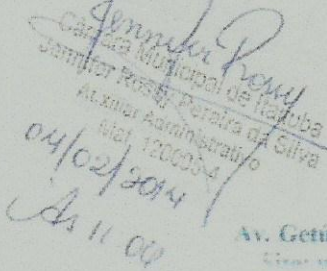 Jennifer Rosy
Câmara Municipal de Itaituba
Jennifer Rosy Pereira da Silva
Auxiliar Administrativo
Mat. 120095-4
04/02/2014
Às 11:04
Av. Getú